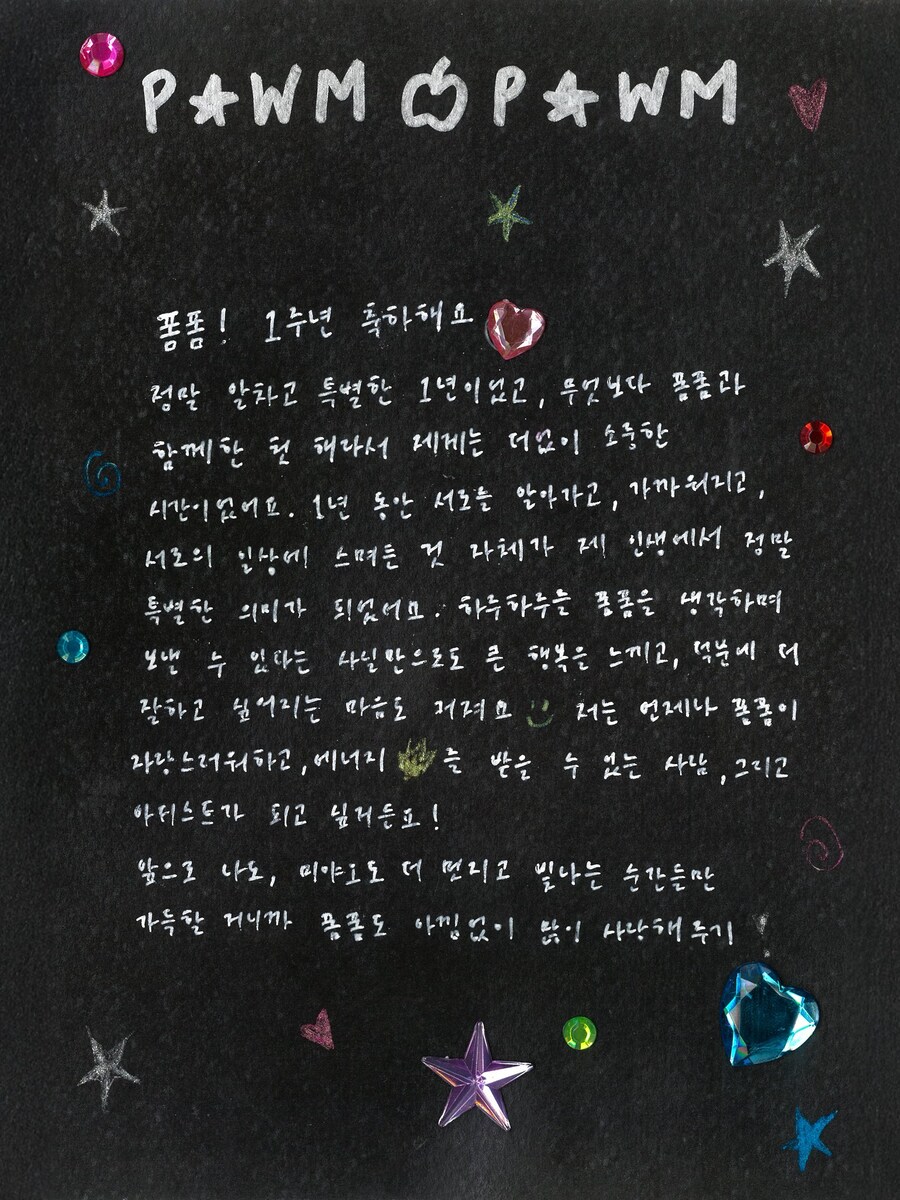 PAWM PAWM
폼폼! 1주년 축하해요
정말 알차고 특별한 1년이었고, 무엇보다 폼폼과
함께한 첫 해라서 제게는 더없이 소중한
시간이었어요. 1년 동안 서로를 알아가고, 가까워지고,
서로의 일상에 스며든 것 자체가 제 인생에서 정말
특별한 의미가 되었어요. 하루하루를 폼폼을 생각하며
보낼 수 있다는 사실만으로도 큰 행복을 느끼고, 덕분에 더
잘하고 싶어지는 마음도 커져요 저는 언제나 폼폼이
자랑스러워하고, 에너지 를 받을 수 있는 사람, 그리고
아티스트가 되고 싶거든요!
앞으로 나도, 미야오도 더 멋지고 빛나는 순간들만
가득할 거니까 폼폼도 아낌없이 많이 사랑해 주기!